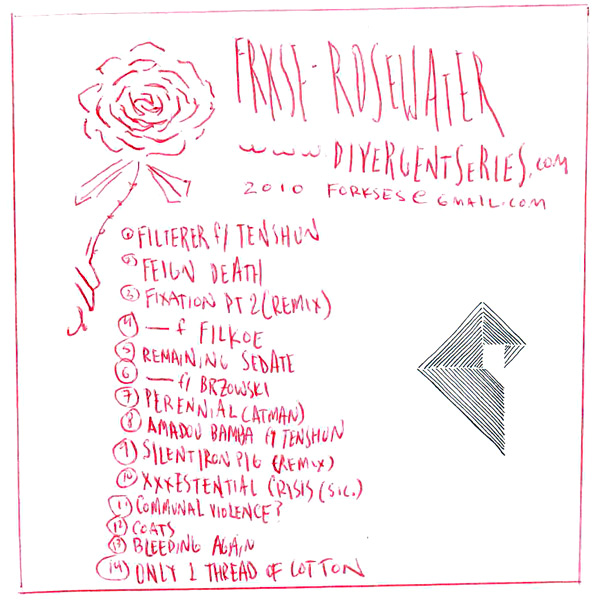 FRKSE - ROSEWATER
www.DIVERGENTSERIES.COM
2010 FORKSES@GMAIL.COM
1 FILTERER f/ TENSHUN
2 FEIGN DEATH
3 FIXATION PT 2 (REMIX)
4 — f FILKOE
5 REMAINING SEDATE
6 — f/ BRZOWSKI
7 PERENNIAL (ATMAN)
8 AMADOU BAMBA f/ TENSHUN
9 SILENT IRON PIG (REMIX)
10 XXXESTENTIAL CRISIS (SIC.)
11 COMMUNAL VIOLENCE?
12 COATS
13 BLEEDING AGAIN
14 ONLY 1 THREAD OF COTTON